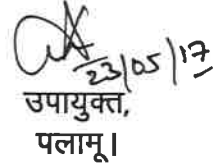 23/05/17
उपायुक्त,
पलामू।